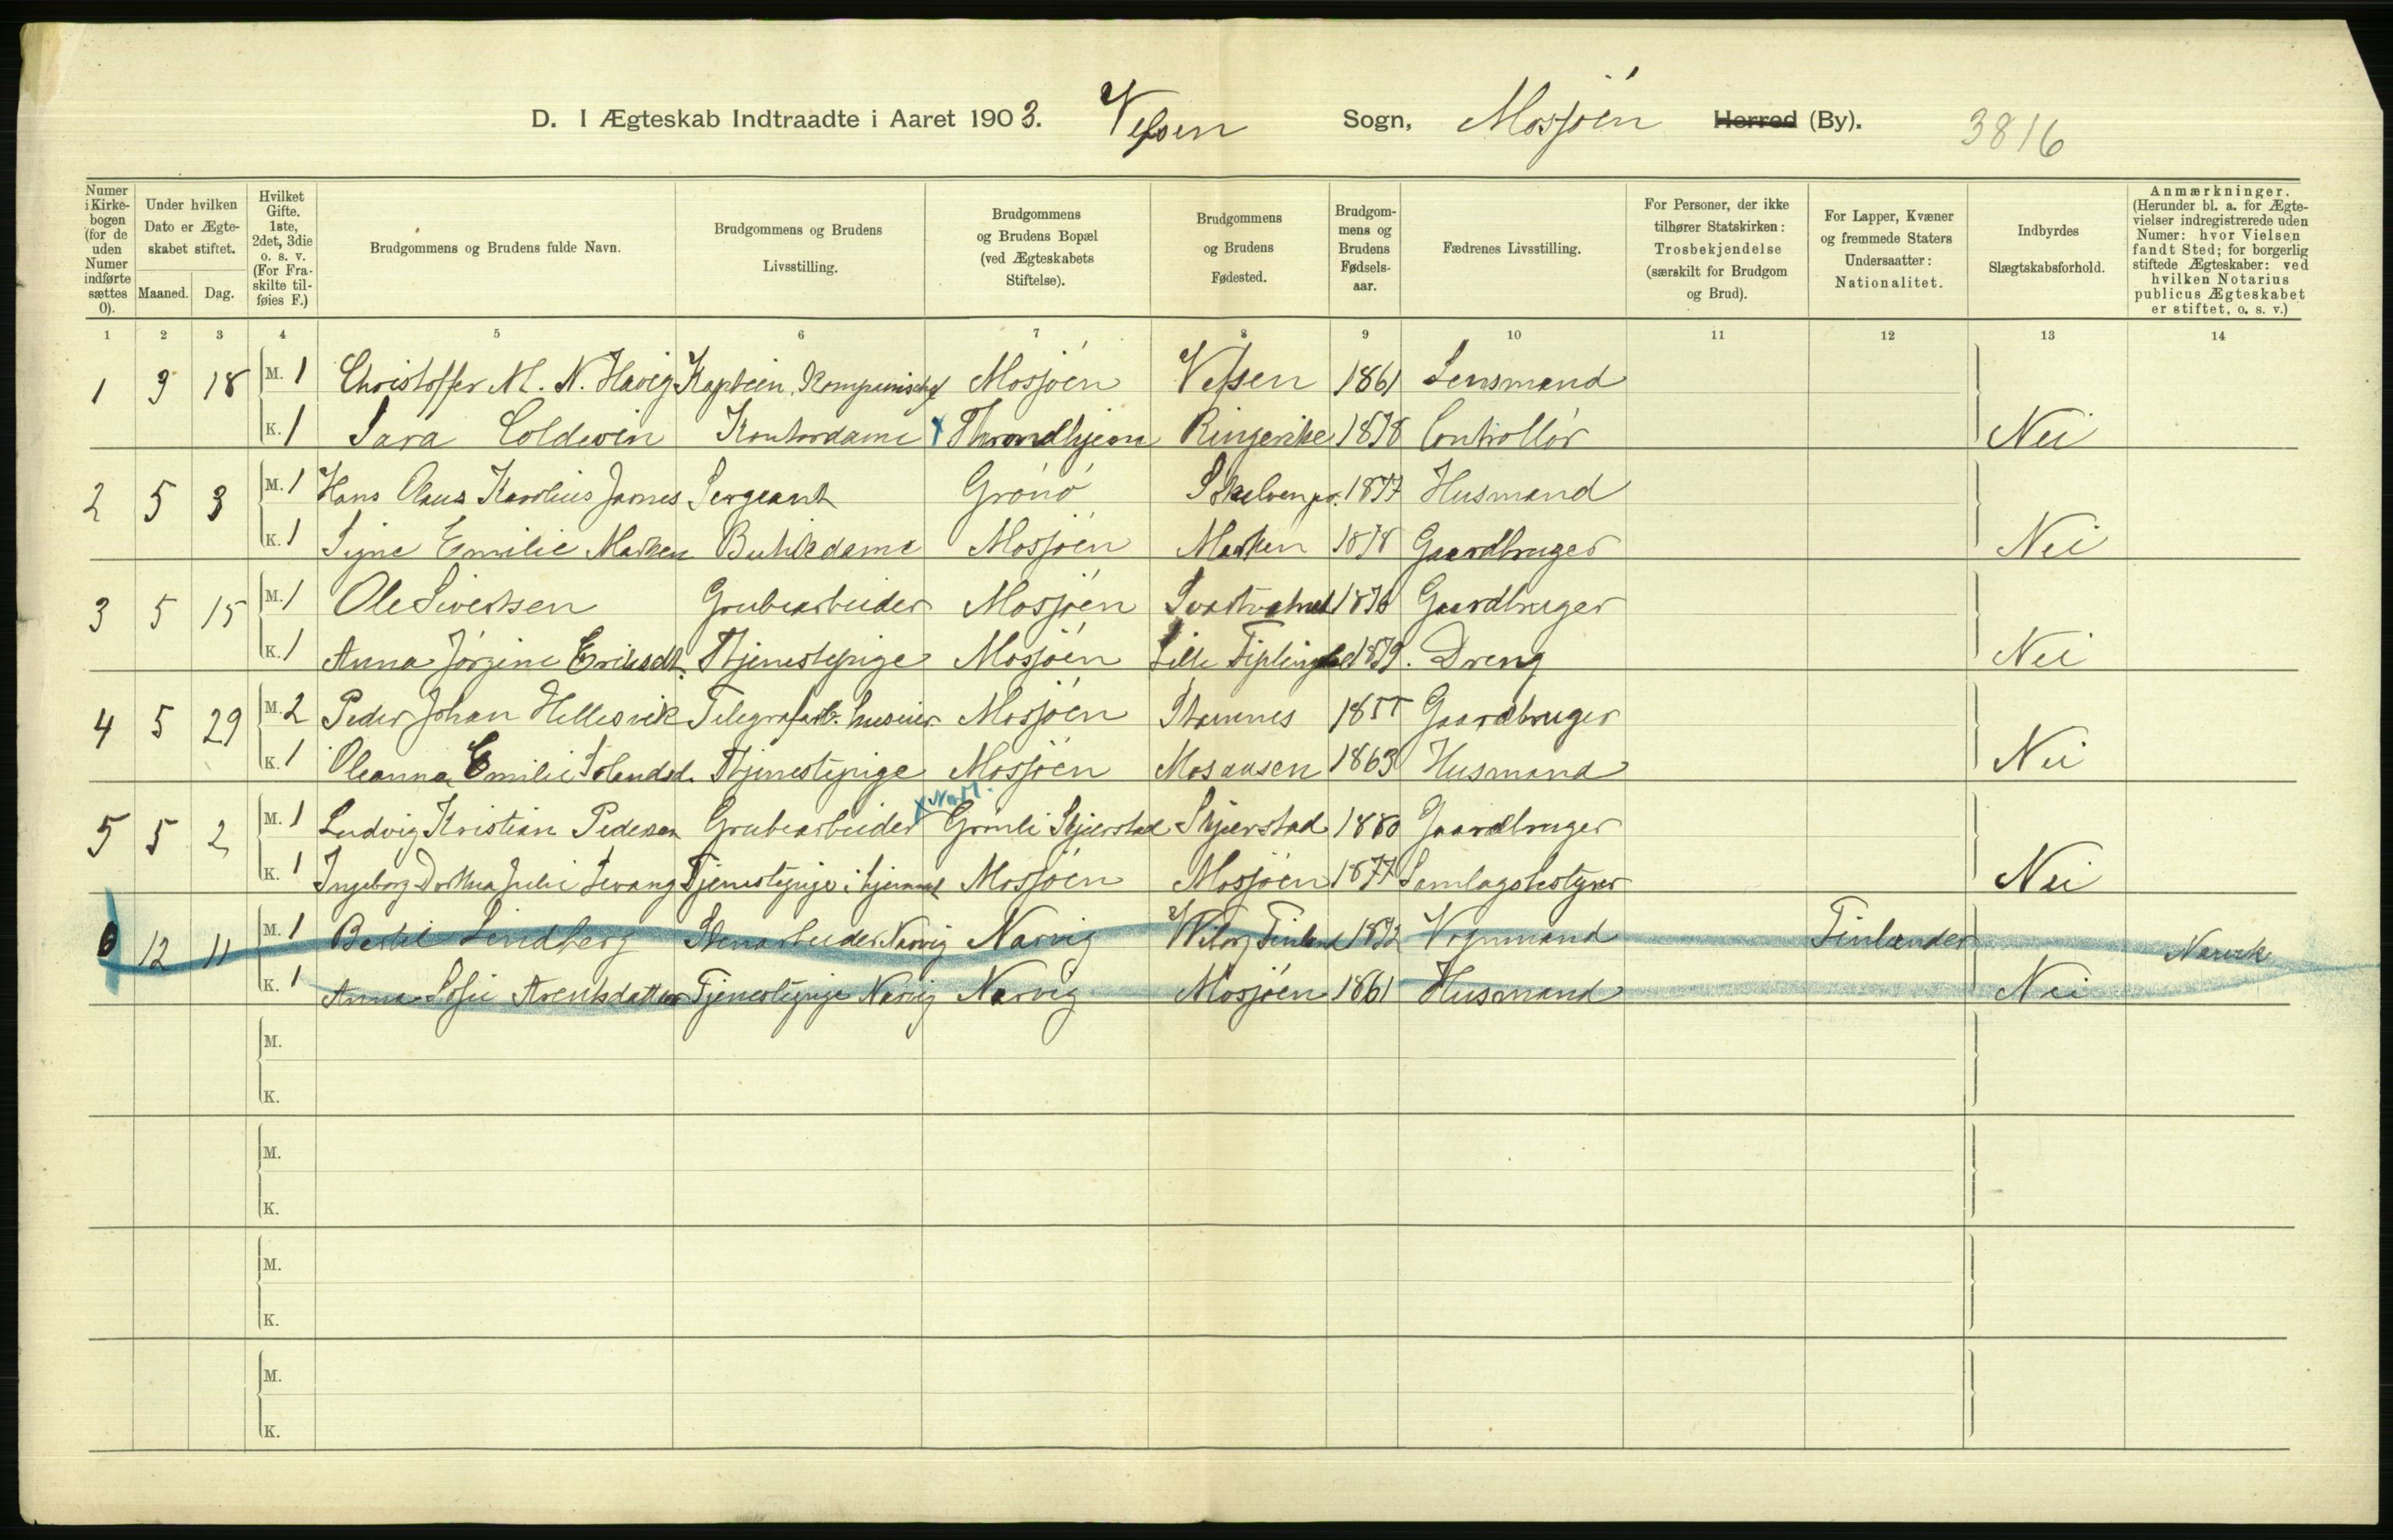 D. I Ægteskab Indtraadte i Aaret 1903. Vefsen Sogn, Mosjøen Herred (By). 3816
Numer i Kirkebogen (for de uden Numer indførte sættes 0).
Under hvilken Dato er Ægteskabet stiftet.
Maaned. Dag.
Hvilket Gifte. 1ste, 2det, 3die o. s. v. (For Fraskilte tilføies F.)
Brudgommens og Brudens fulde Navn.
Brudgommens og Brudens Livsstilling.
Brudgommens og Brudens Bopæl (ved Ægteskabets Stiftelse).
Brudgommens og Brudens Fødested.
Brudgommens og Brudens Fødselsaar.
Fædrenes Livsstilling.
For Personer, der ikke tilhører Statskirken: Trosbekjendelse (særskilt for Brudgom og Brud).
For Lapper, Kvæner og fremmede Staters Undersaatter: Nationalitet.
Indbyrdes Slægtskabsforhold.
Anmærkninger. (Herunder bl. a. for Ægtevielser indregistrerede uden Numer: hvor Vielsen fandt Sted; for borgerlig stiftede Ægteskaber: ved hvilken Notarius publicus Ægteskabet er stiftet, o. s. v.)
1 2 3 4 5 6 7 8 9 10 11 12 13 14
1 9 18 M. 1 Christoffer M. N. Havig Kaptein, Kompanichef Mosjøen Vefsen 1861 Lensmand
K. 1 Sara Coldevin Kontordame x Throndhjem Ringerike 1878 Controllør Nei
2 5 3 M. 1 Hans Olaus Karolius James Sergeant Grønø 1877 Husmand
K. 1 Signe Emilie Marken Butikdame Mosjøen Marken 1878 Gaardbruger Nei
3 5 15 M. 1 Ole Sivertsen Grubearbeider Mosjøen Svartvatnet 1876 Gaardbruger
K. 1 Anna Jørgine Eriksdt. Tjenestepige Mosjøen Lille Fiplingdal 1879. Dreng Nei
4 5 29 M. 2 Peder Johan Hellesvik Telegrafarb. huseier Mosjøen Stamnes 1855 Gaardbruger
K. 1 Oleanna Emilie Tjenestepige Mosjøen Mosaasen 1863 Husmand Nei
x Nordl.
5 5 2 M. 1 Ludvig Kristian Pedersen Grubearbeider Grønli Skjerstad Skjerstad 1880 Gaardbruger
K. 1 Ingeborg Dorthea Julie Levang Tjenestepige i hjemmet Mosjøen Mosjøen 1877 Samlagsbestyrer Nei
6 12 11 M. 1 Bertil Lindberg Stenarbeider Narvig Narvig Wiborg Finland 1872 Vognmand Finlænder Narvik
K. 1 Anna Sofie Arentsdatter Tjenestepige Narvig Narvig Mosjøen 1861 Husmand Nei
M.
K.
M.
K.
M.
K.
M.
K.